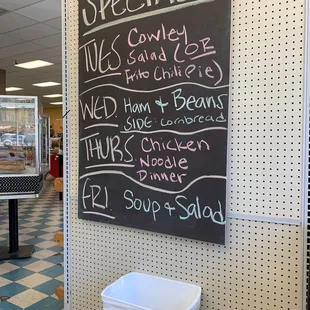 SPECIALS
TUES. Cowley
Salad (OR
Frito Chili Pie)
WED. Ham & Beans
SIDE: Cornbread
THURS. Chicken
Noodle
Dinner
FRI. Soup + Salad